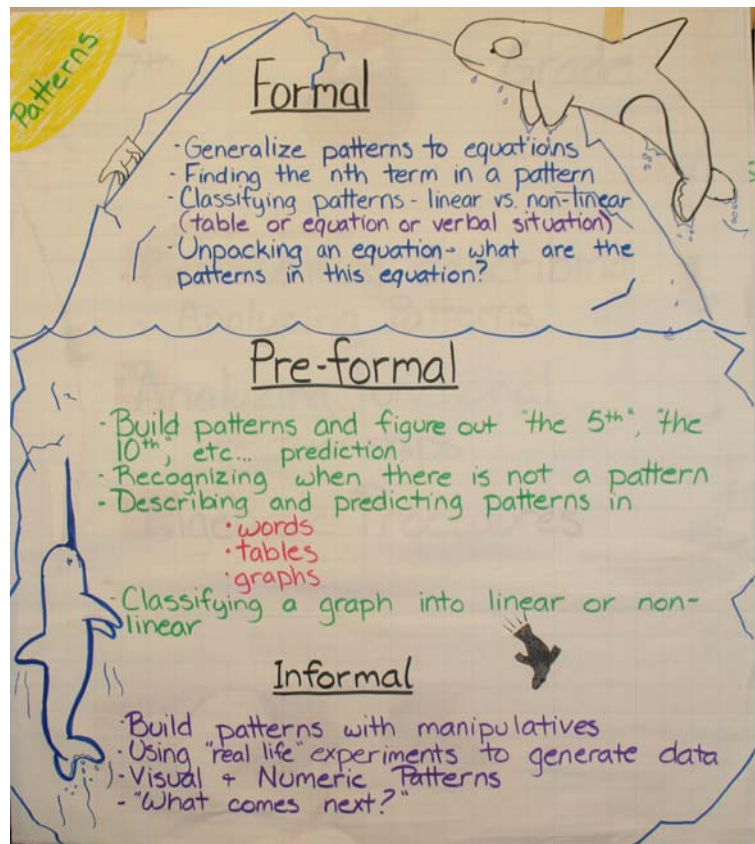 Patterns
Formal
- Generalize patterns to equations
- Finding the nth term in a pattern
- Classifying patterns - linear vs. non-linear
(table or equation or verbal situation)
- Unpacking an equation → what are the
patterns in this equation?
Pre-formal
- Build patterns and figure out "the 5th", "the
10th", etc... prediction
- Recognizing when there is not a pattern
- Describing and predicting patterns in
• words
• tables
• graphs
- Classifying a graph into linear or non-
linear
Informal
- Build patterns with manipulatives
- Using "real life" experiments to generate data
- Visual + Numeric Patterns
- "What comes next?"